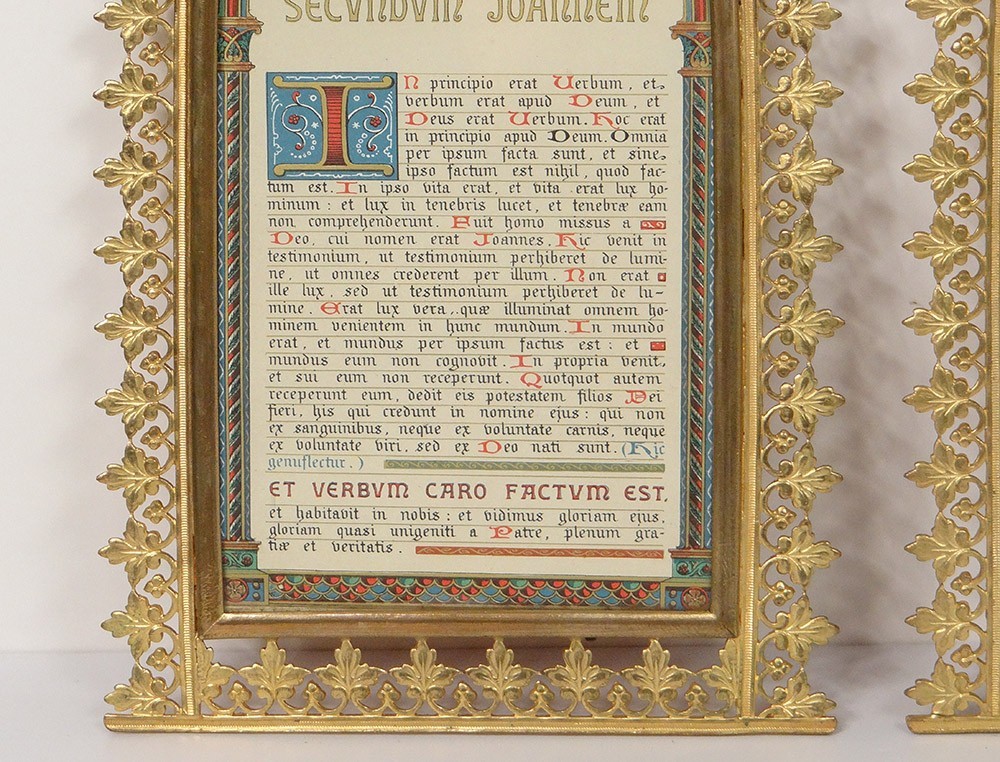 SECVNDVM JOANNEM
IN principio erat Verbum, et
verbum erat apud Deum, et
Deus erat Verbum. Hoc erat
in principio apud Deum. Omnia
per ipsum facta sunt, et sine
ipso factum est nihil, quod fac-
tum est. In ipso vita erat, et vita erat lux ho-
minum: et lux in tenebris lucet, et tenebræ eam
non comprehenderunt. Fuit homo missus a
Deo, cui nomen erat Joannes. Hic venit in
testimonium, ut testimonium perhiberet de lumi-
ne, ut omnes crederent per illum. Non erat
ille lux, sed ut testimonium perhiberet de lu-
mine. Erat lux vera, quæ illuminat omnem ho-
minem venientem in hunc mundum. In mundo
erat, et mundus per ipsum factus est: et
mundus eum non cognovit. In propria venit,
et sui eum non receperunt. Quotquot autem
receperunt eum, dedit eis potestatem filios Dei
fieri, his qui credunt in nomine ejus: qui non
ex sanguinibus, neque ex voluntate carnis, neque
ex voluntate viri, sed ex Deo nati sunt. (Hic
genuflectur.)
ET VERBVM CARO FACTVM EST,
et habitavit in nobis: et vidimus gloriam ejus,
gloriam quasi unigeniti a Patre, plenum gra-
tiæ et veritatis.